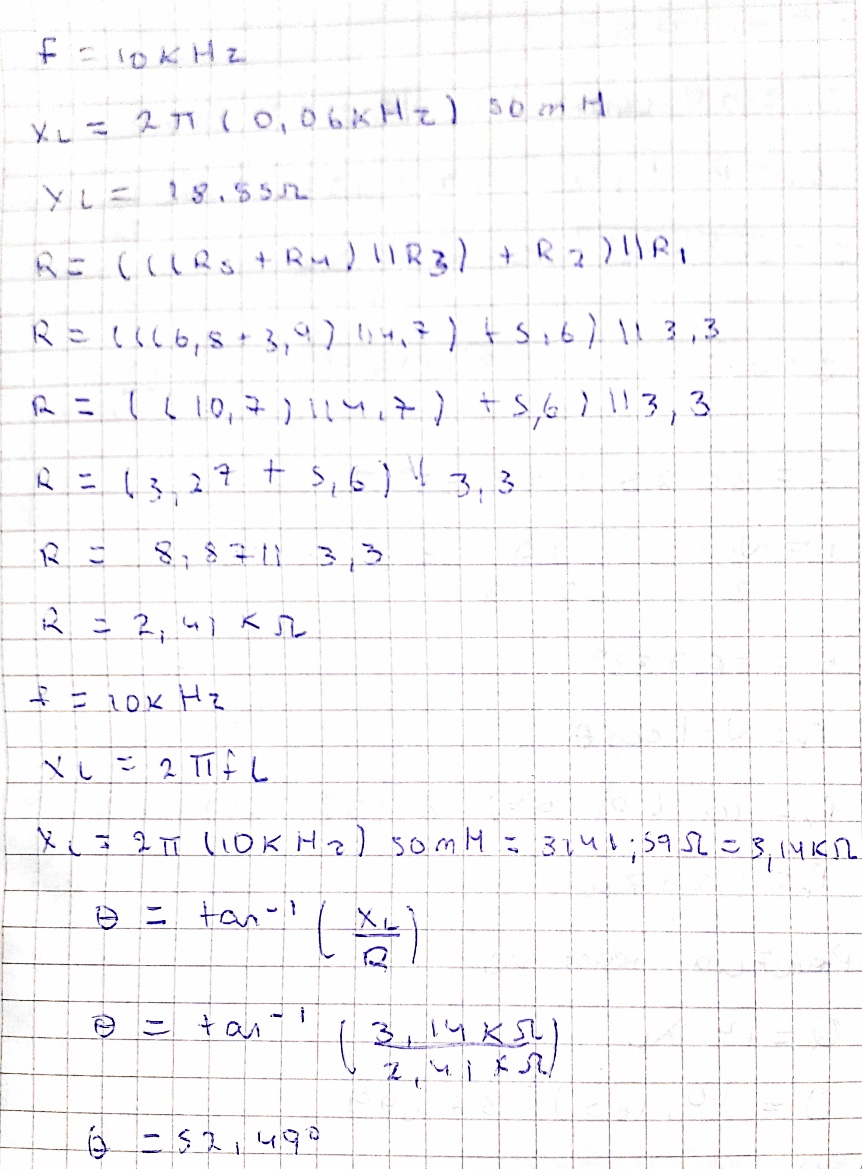 f = 10KHz
XL = 2π (0,06KHz) 50mH
XL = 18.85Ω
R = (((R5 + R4) || R3) + R2) || R1
R = (((6,8 + 3,9) || 4,7) + 5,6) || 3,3
R = ((10,7) || 4,7) + 5,6) || 3,3
R = (3,27 + 5,6) || 3,3
R = 8,87 || 3,3
R = 2,41 KΩ
f = 10K Hz
XL = 2πfL
XL = 2π (10KHz) 50mH = 3141,59Ω = 3,14KΩ
θ = tan-1 (XL/R)
θ = tan-1 (3,14KΩ/2,41KΩ)
θ = 52,49°